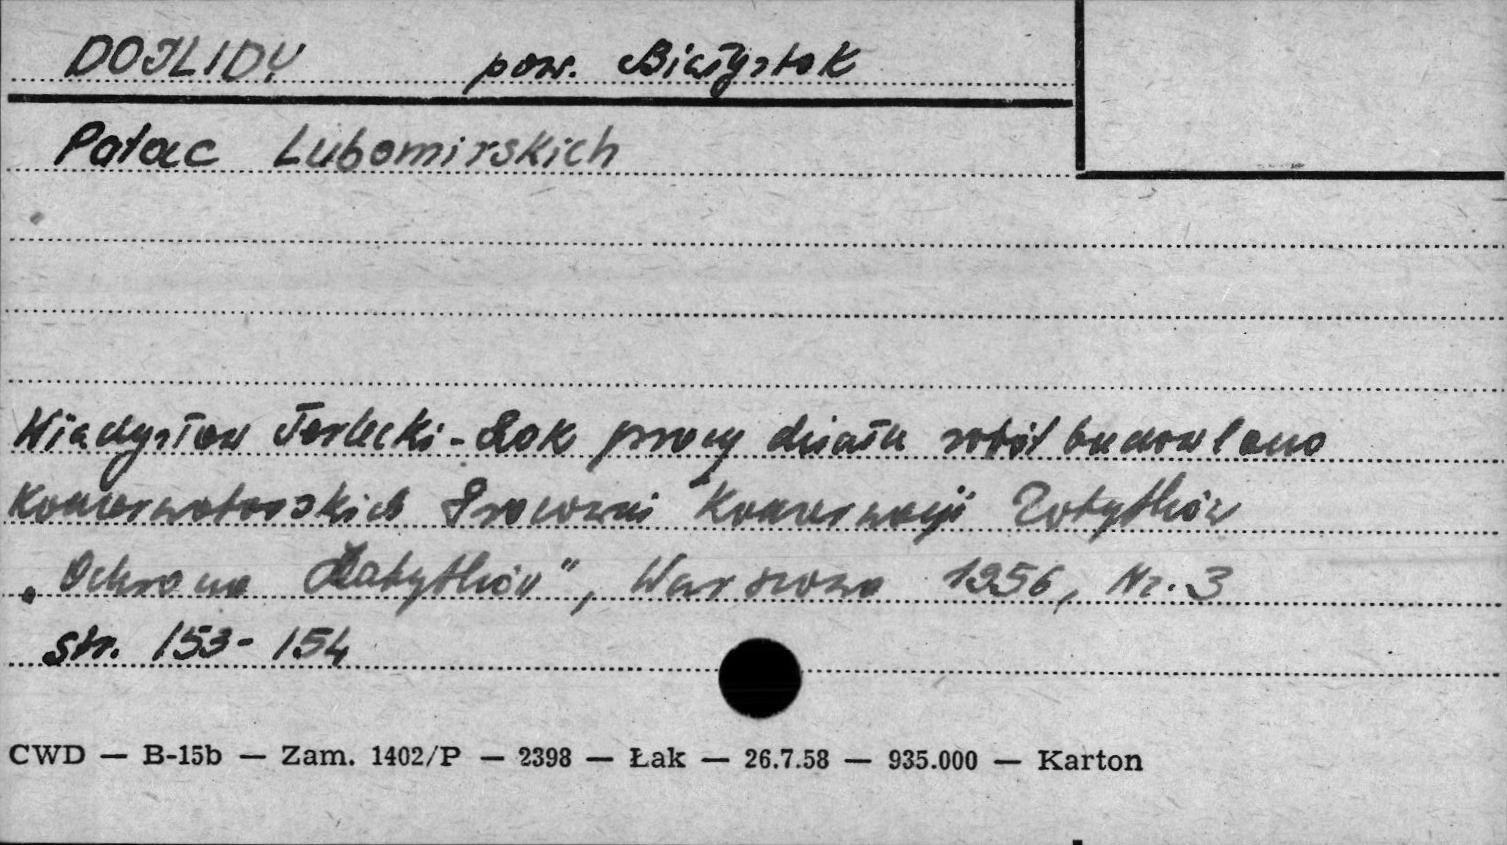 DOJLIDY pow. Białystok
Pałac Lubomirskich
Władysław Terlecki - Rok pracy działu robót budowlano
konserwatorskich Pracowni Konserwacji Zabytków
„Ochrona Zabytków", Warszawa 1956, Nr. 3
str. 153-154
CWD — B-15b — Zam. 1402/P — 2398 — Łak — 26.7.58 — 935.000 — Karton